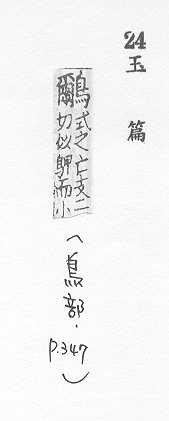 24
玉篇
鸍
式之亡支二
切似鴨而小
(鳥部・p.347)